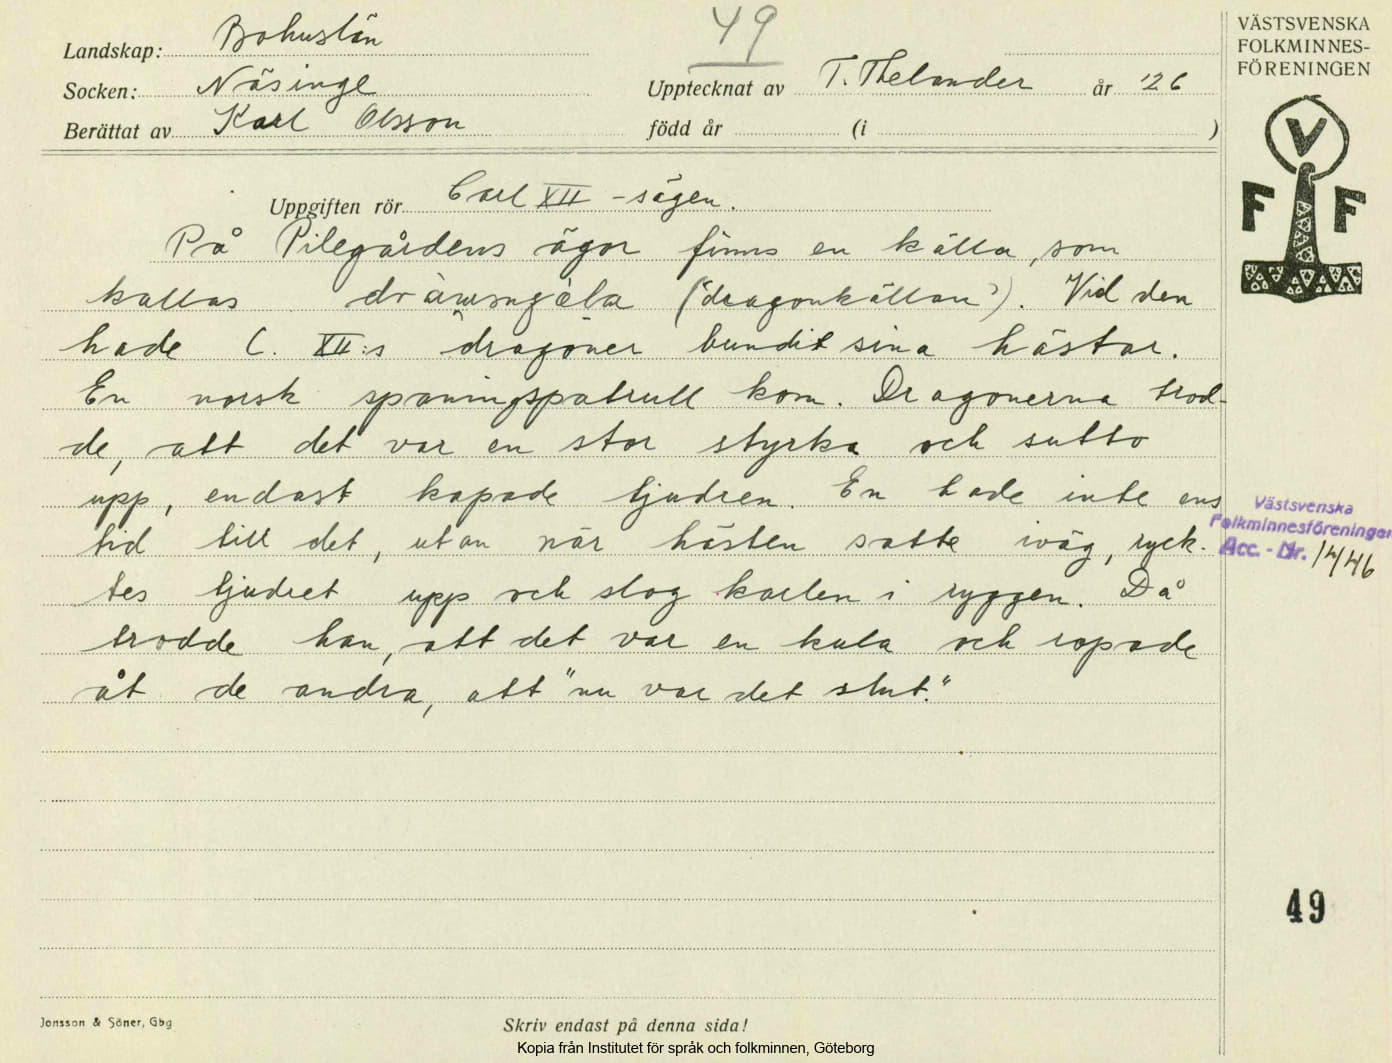 49
Landskap: Bohuslän
Socken: Näsinge
Upptecknat av T. Thelander år '26
Berättat av Karl Olsson
född år (i )
Uppgiften rör Carl XII-sägen.
På Pilegårdens ägor finns en källa, som
kallas ("dragonkällan"). Vid den
hade C. XII:s dragoner bundit sina hästar.
En norsk spaningspatrull kom. Dragonerna trod-
de, att det var en stor styrka och sutto
upp, endast kapade tjudren. En hade inte ens
tid till det, utan när hästen satte iväg, ryck-
tes tjudret upp och slog karlen i ryggen. Då
trodde han, att det var en kula och ropade
åt de andra, att "nu var det slut."
VÄSTSVENSKA
FOLKMINNES-
FÖRENINGEN
V
F F
Västsvenska
Folkminnesföreningen
Acc. - Nr. 1446
49
Jonsson & Söner, Gbg
Skriv endast på denna sida!
Kopia från Institutet för språk och folkminnen, Göteborg